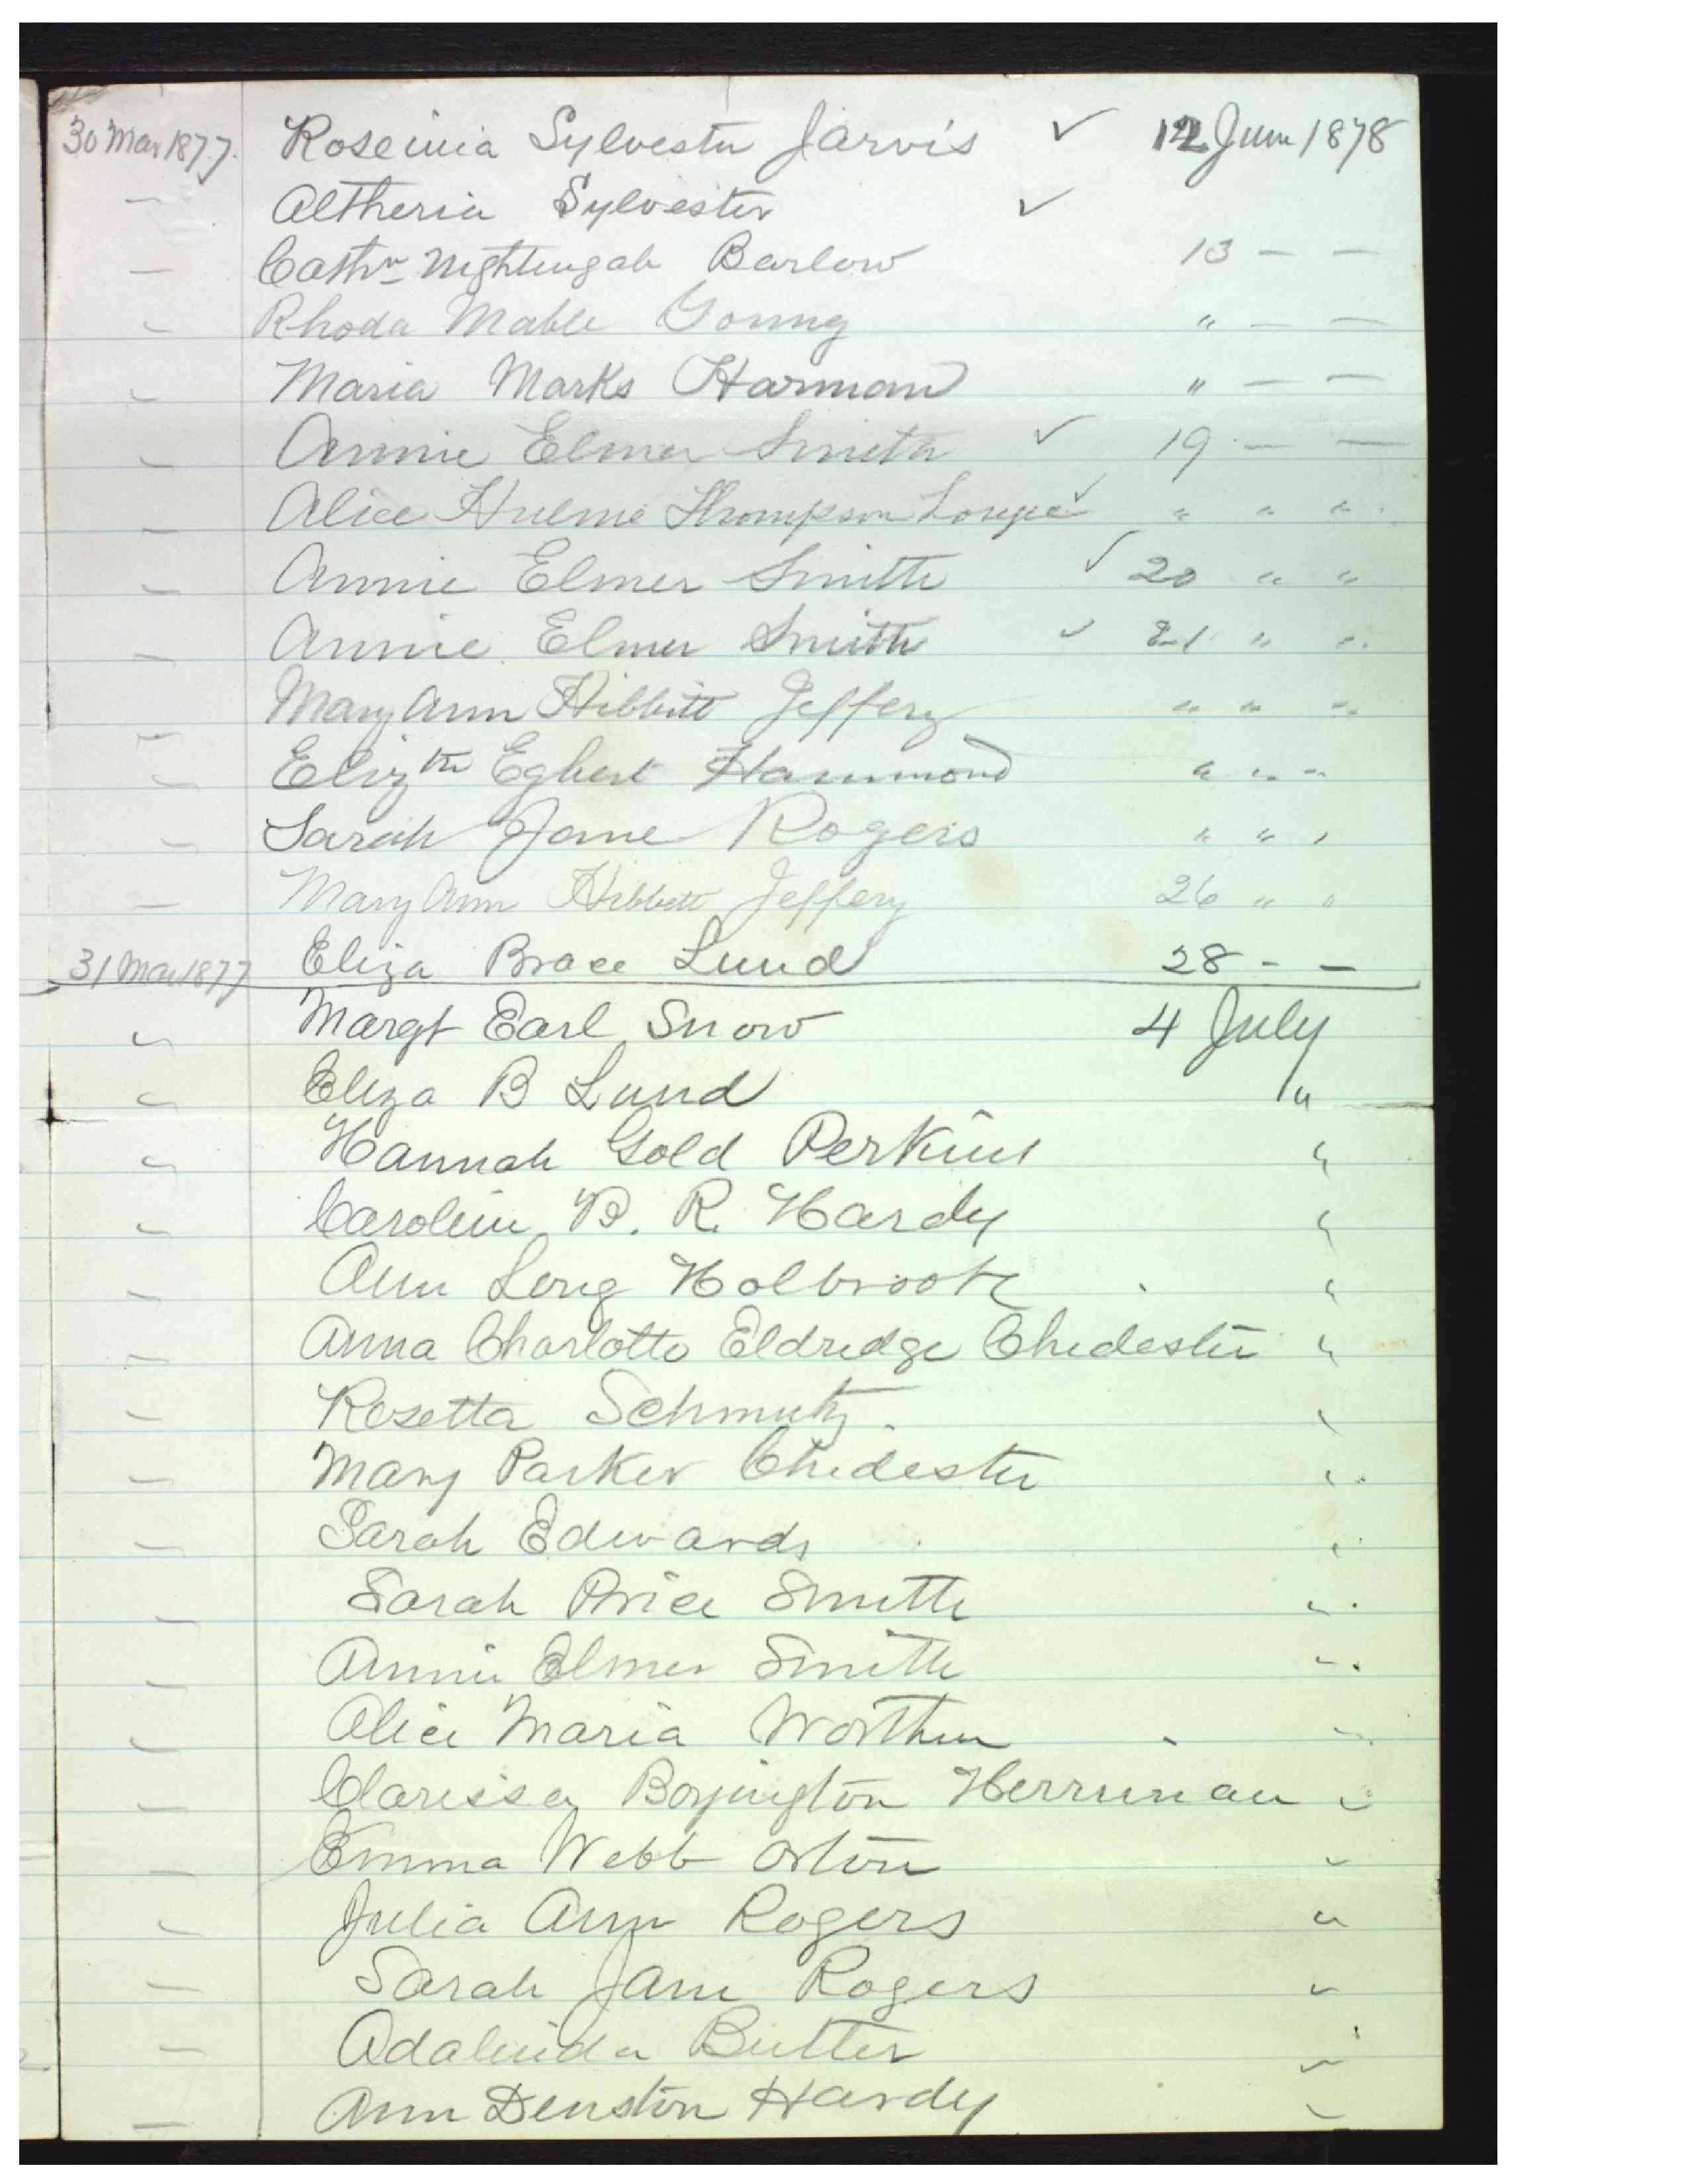 30 Mar 1877. Roseinia Sylvester Jarvis ✓ 12 June 1878
— Altheria Sylvester ✓
— Cathn Nightengale Barlow 13 — —
— Rhoda Mable Young " — —
— Maria Marks Harman " — —
— Annie Elmer Smith ✓ 19 — —
— Alice Hulme Thompson ✓ " " "
— Annie Elmer Smith ✓ 20 " "
— Annie Elmer Smith ✓ 21 " "
— Mary Ann Hibbitt Jeffery " " "
— Elizth Egbert Hammond " " "
— Sarah Jane Rogers " " "
— Mary Ann Hibbett Jeffery 26 " "
31 Mar 1877 Eliza Brace Lund 28 - -
" Margt Earl Snow 4 July
" Eliza B Lund "
" Hannah Gold Perkins "
— Carolin B. R. Hardy "
— Ann Long Holbrook "
— Anna Charlotte Eldredge Chidester "
— Rosetta Schmutz. "
— Mary Parker Chidester "
— Sarah Edwards "
— Sarah Price Smith "
— Annie Elmer Smith "
— Alice Maria Worthen "
— Clarissa Boyington Herriman "
— Emma Webb Orton "
— Julia Ann Rogers "
— Sarah Jane Rogers "
— Adalinda Butler "
— Ann Denston Hardy "